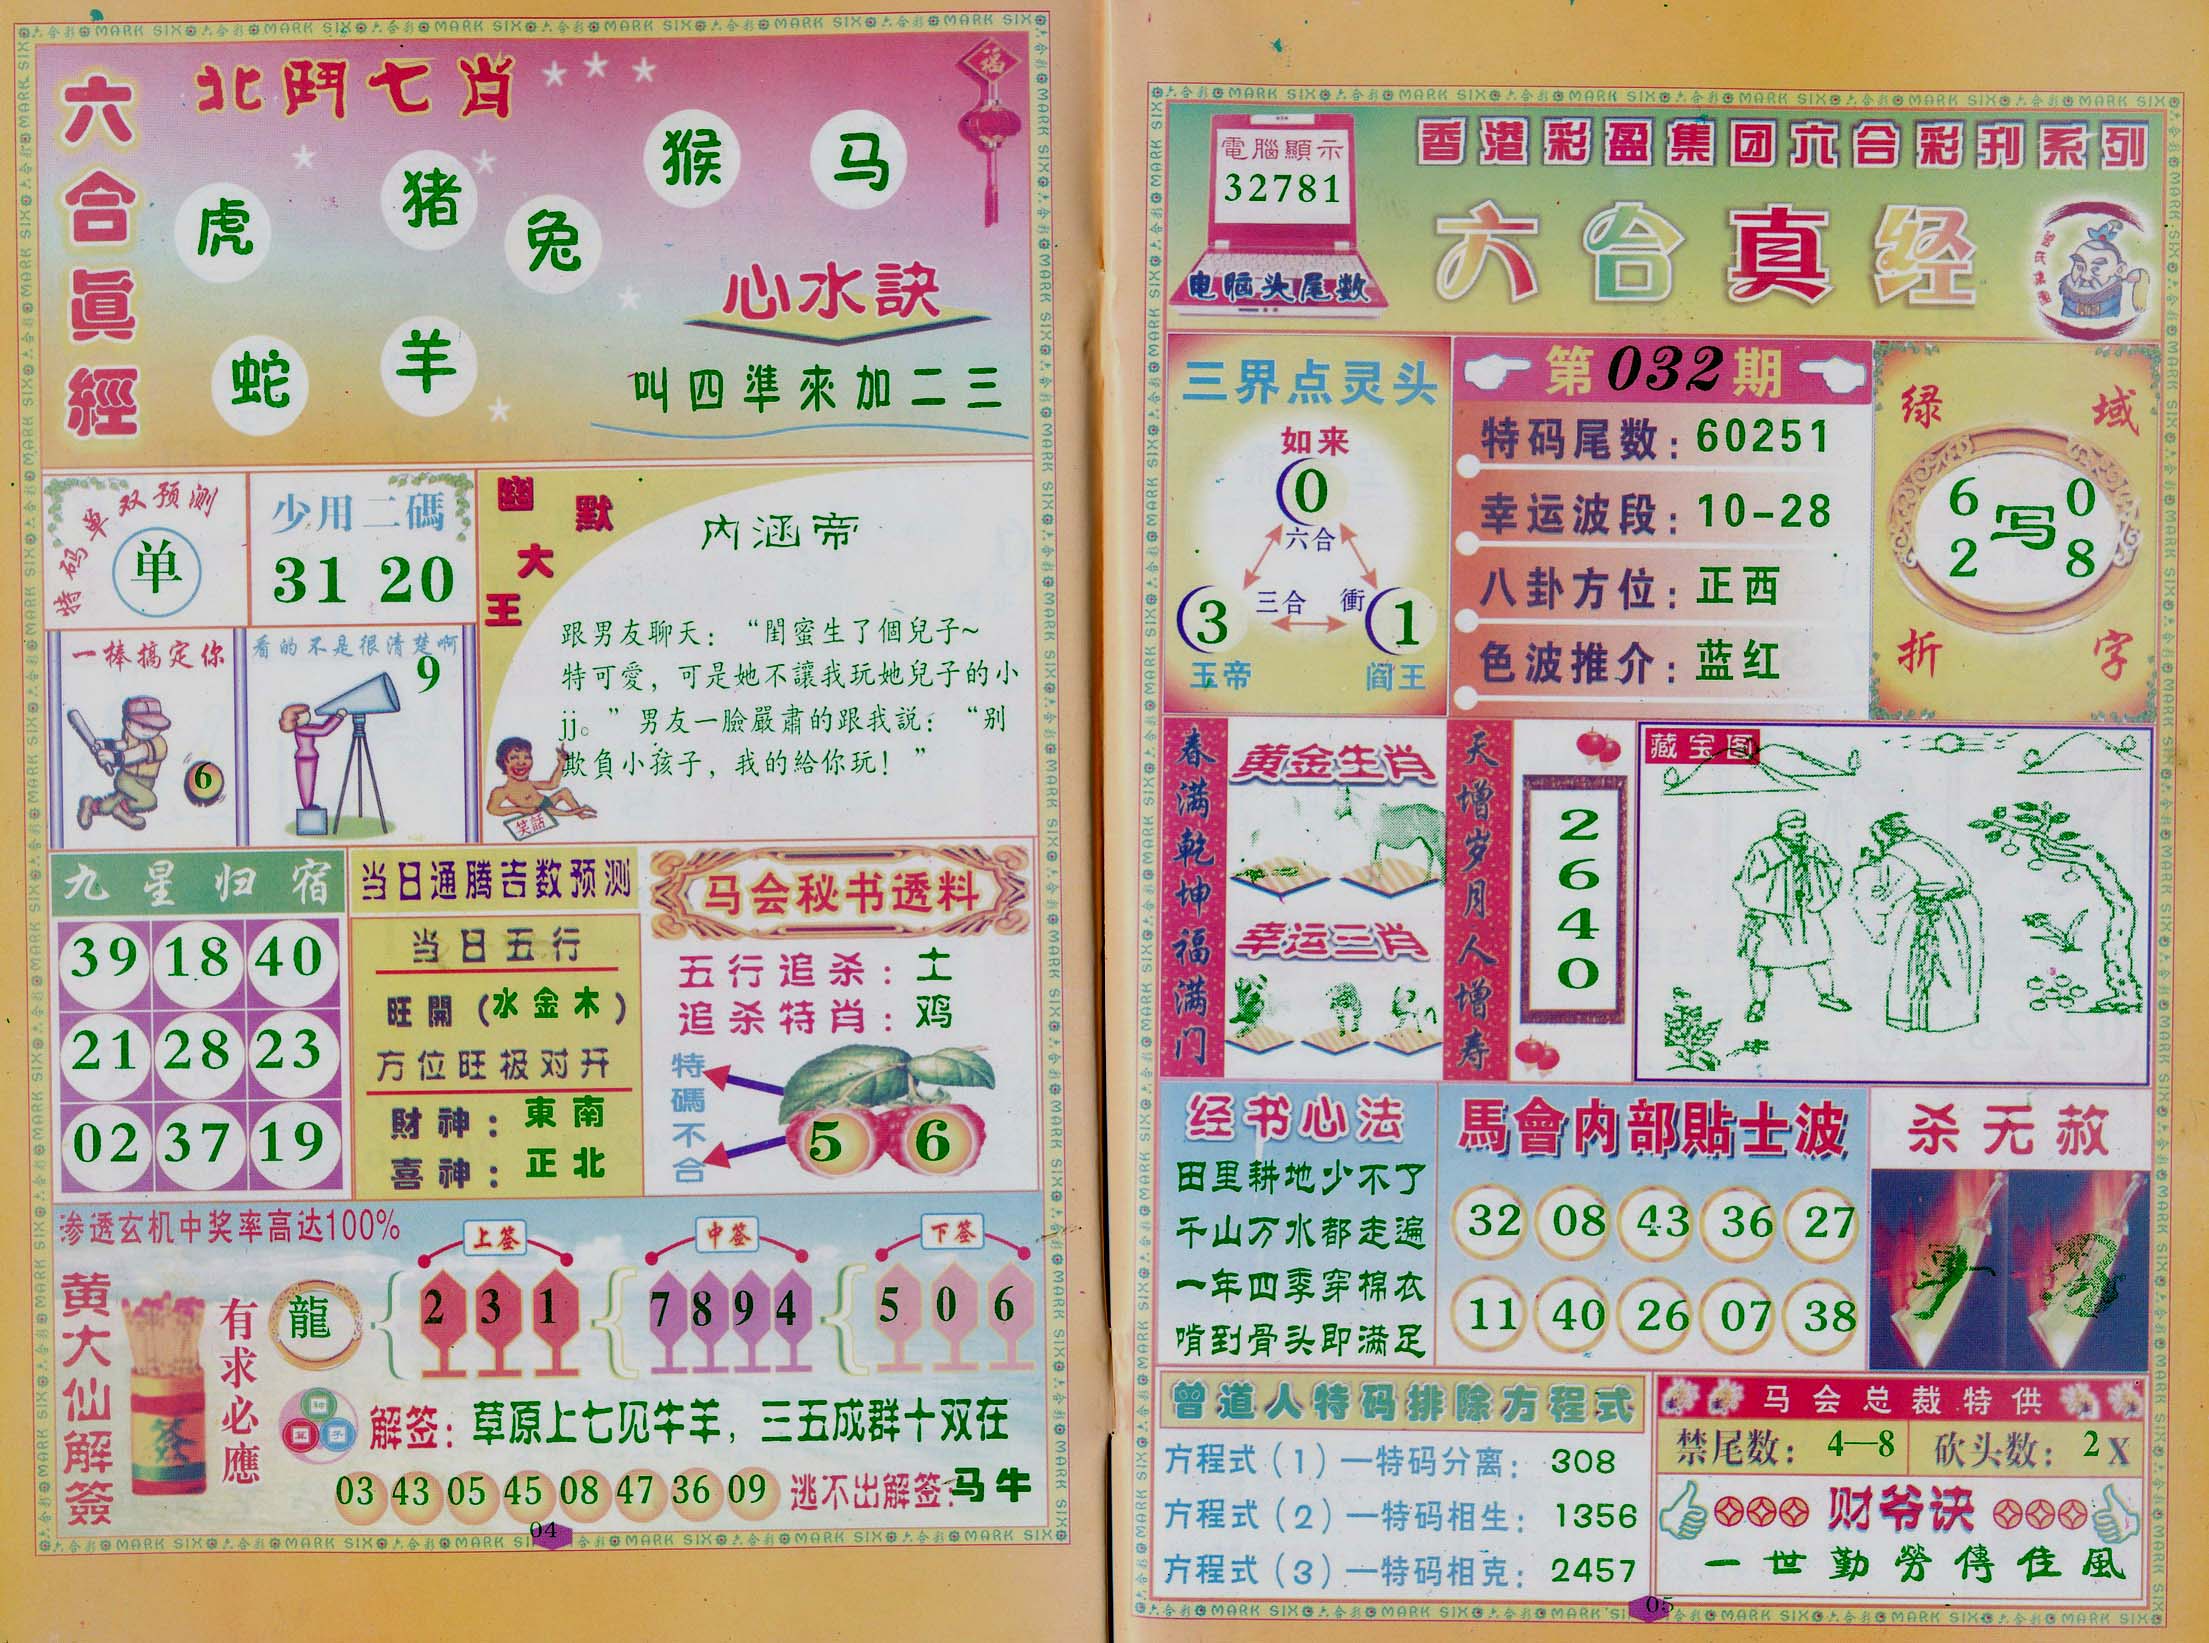 六合眞經
北鬥七肖
虎
猪
兔
猴
马
蛇
羊
心水訣
叫四準來加二三
特码单双预测
单
少用二碼
31 20
一棒搞定你
6
看的不是很清楚啊
9
幽默大王
内涵帝
跟男友聊天：“閨蜜生了個兒子~
特可愛，可是她不讓我玩她兒子的小
jj。”男友一臉嚴肅的跟我説：“别
欺負小孩子，我的給你玩！”
笑話
九星归宿
39 18 40
21 28 23
02 37 19
当日通腾吉数预测
当日五行
旺開(水金木)
方位旺极对开
財神：東南
喜神：正北
马会秘书透料
五行追杀：土
追杀特肖：鸡
特碼不合
5 6
渗透玄机中奖率高达100%
黄大仙解签
签
有求必應
龍
上签
2 3 1
中签
7 8 9 4
下签
5 0 6
解签：草原上七见牛羊，三五成群十双在
03 43 05 45 08 47 36 09 逃不出解签：马牛
04
電腦顯示
32781
电脑头尾数
香港彩盈集团六合彩刊系列
六合真经
三界点灵头
如来
0
六合
三合 衝
3 1
玉帝 阎王
第032期
特码尾数：60251
幸运波段：10-28
八卦方位：正西
色波推介：蓝红
绿域折字
6 0
写
2 8
春满乾坤福满门
黄金生肖
幸运三肖
天增岁月人增寿
2640
藏宝图
经书心法
田里耕地少不了
千山万水都走遍
一年四季穿棉衣
啃到骨头即满足
馬會内部貼士波
32 08 43 36 27
11 40 26 07 38
杀无赦
曾道人特码排除方程式
方程式（1）—特码分离：308
方程式（2）—特码相生：1356
方程式（3）—特码相克：2457
马会总裁特供
禁尾数：4—8 砍头数：2X
财爷诀
一世勤勞傳佳風
05